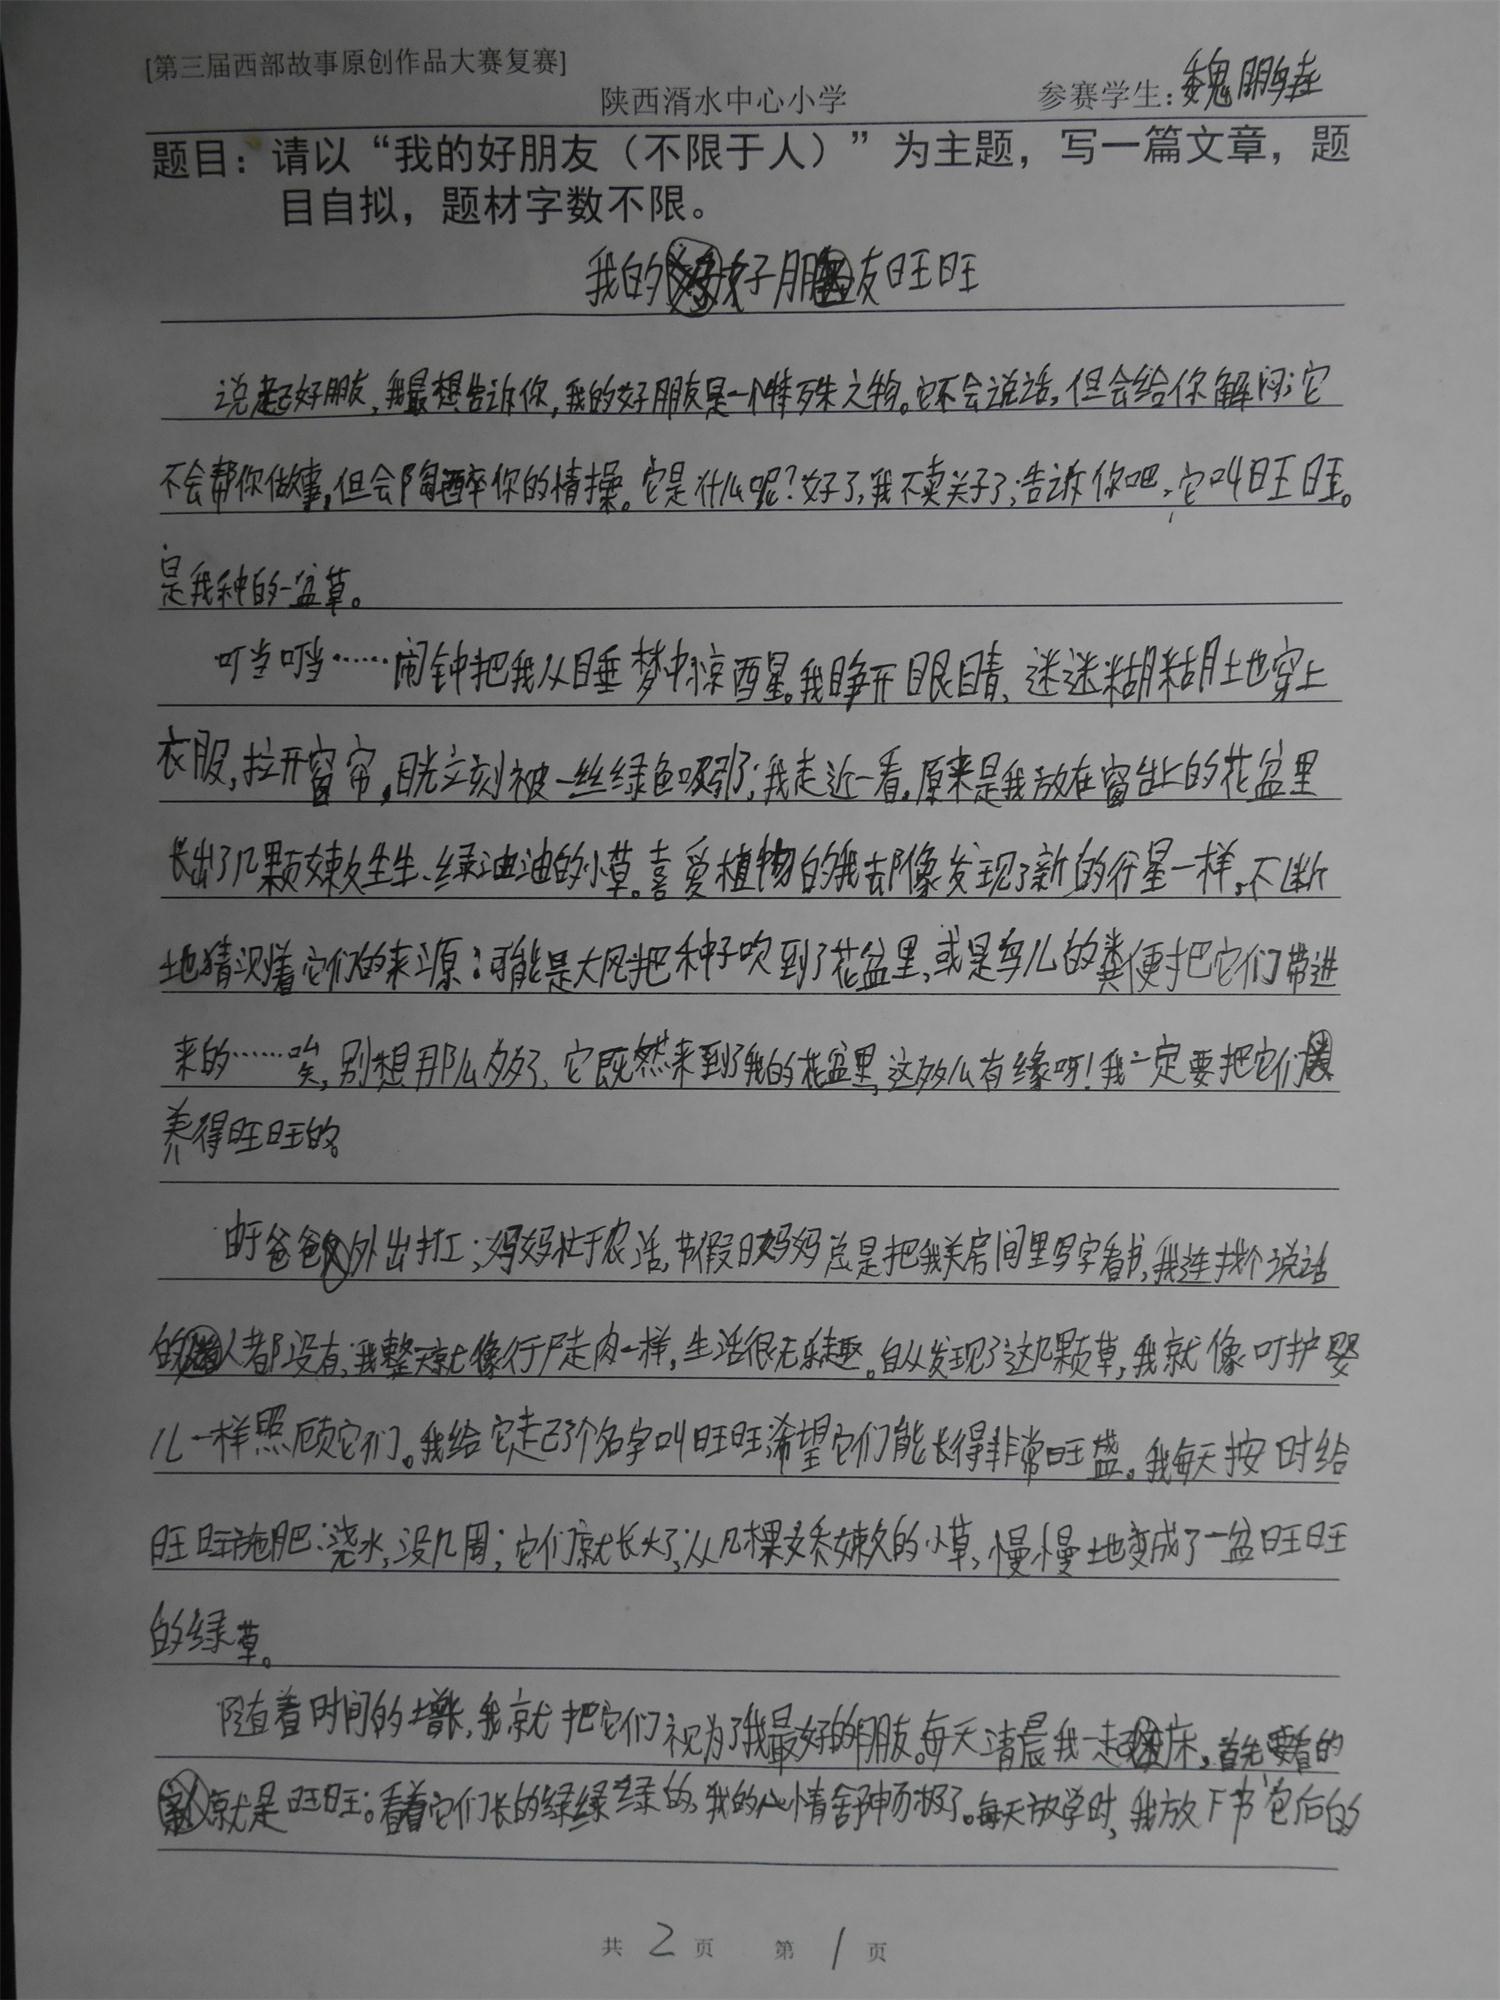 [第三届西部故事原创作品大赛复赛]
陕西湑水中心小学 参赛学生：魏鹏
题目：请以“我的好朋友（不限于人）”为主题，写一篇文章，题
目自拟，题材字数不限。
我的好朋友旺旺
说起好朋友，我最想告诉你，我的好朋友是一个特殊之物。它不会说话，但会给你解闷；它
不会帮你做事，但会陶醉你的情操。它是什么呢？好了，我不卖关子了；告诉你吧，它叫旺旺。
是我种的一盆草。
叮当叮当……闹钟把我从睡梦中惊醒。我睁开眼睛、迷迷糊糊土也穿上
衣服，拉开窗帘，目光立刻被一丝绿色吸引了；我走近一看。原来是我放在窗台上的花盆里
长出了几颗嫩生生、绿油油的小草。喜爱植物的我去阝像发现了新的行星一样。不断
地猜测着它们的来源：可能是大风把种子吹到了花盆里，或是鸟儿的粪便把它们带进
来的……唉，别想那么多了、它既然来到了我的花盆里，这多么有缘呀！我一定要把它们
养得旺旺的。
由于爸爸外出打工；妈妈忙于农活，节假日妈妈总是把我关房间里写字看书，我连找个说话
的人都没有；我整天就像行尸走肉一样，生活很无乐趣。自从发现了这几颗草，我就像呵护婴
儿一样照顾它们。我给它起了个名字叫旺旺希望它们能长得非常旺盛。我每天按时给
旺旺施肥；浇水，没几周；它们就长大了；从几棵柔嫩的小草，慢慢地变成了一盆旺旺
的绿草。
随着时间的增长，我就把它们视为了我最好的朋友。每天清晨我一起床，首先要看的
就是旺旺。看着它们长的绿绿绿的，我的心情舒畅极了。每天放学时，我放下书包后的
共 2 页 第 1 页